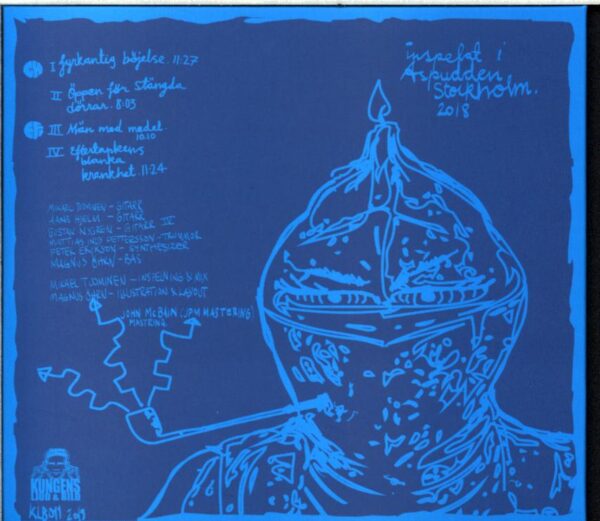 I fyrkantig böjelse. 11:27
II Öppen för stängda
dörrar. 8:03
III Män med medel.
10:10
IV Eftertankens
blanka
krankhet 11:24
inspelat i
Aspudden
Stockholm.
2018
MIKAEL TUOMINEN – GITARR
HJELM – GITARR
GUSTAV NYGREN – GITARR IV
MATTIAS INDY PETTERSSON – TRUMMOR
PETER ERIKSON – SYNTHESIZER
MAGNUS ÖHRN – BAS
MIKAEL TUOMINEN – INSPELNING & MIX
MAGNUS ÖHRN – ILLUSTRATION & LAYOUT
JOHN McBAIN (JPM MASTERING)
MASTRING
KUNGENS
KLR011 2019